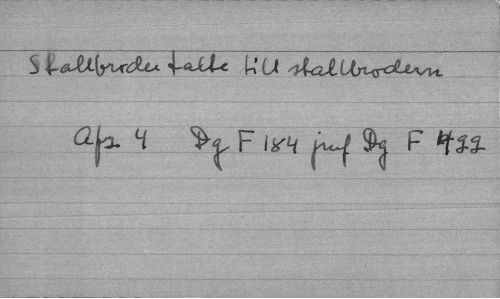 Stallbroder talte till stallbrodern
Afz. 4 Dg F 184 jmf Dg F 499